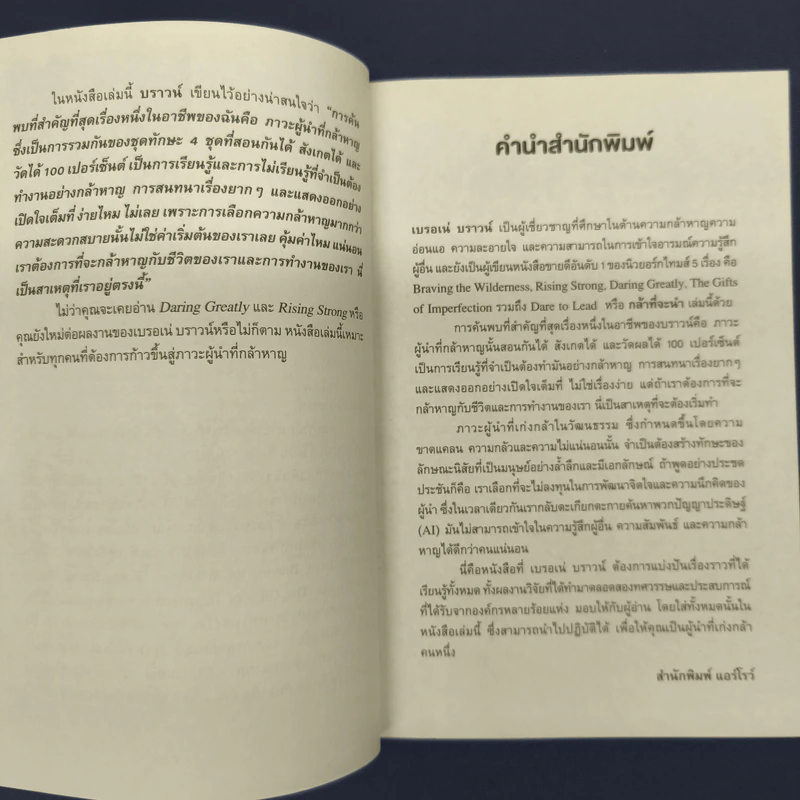 ในหนังสือเล่มนี้ บราวน์ เขียนไว้อย่างน่าสนใจว่า "การค้น
พบที่สำคัญที่สุดเรื่องหนึ่งในอาชีพของฉันคือ ภาวะผู้นำที่กล้าหาญ
ซึ่งเป็นการรวมกันของชุดทักษะ 4 ชุดที่สอนกันได้ สังเกตได้ และ
วัดได้ 100 เปอร์เซ็นต์ เป็นการเรียนรู้และการไม่เรียนรู้ที่จำเป็นต้อง
ทำงานอย่างกล้าหาญ การสนทนาเรื่องยากๆ และแสดงออกอย่าง
เปิดใจเต็มที่ ง่ายไหม ไม่เลย เพราะการเลือกความกล้าหาญมากกว่า
ความสะดวกสบายนั้นไม่ใช่ค่าเริ่มต้นของเราเลย คุ้มค่าไหม แน่นอน
เราต้องการที่จะกล้าหาญกับชีวิตของเราและการทำงานของเรา นี่
เป็นสาเหตุที่เราอยู่ตรงนี้"
ไม่ว่าคุณจะเคยอ่าน Daring Greatly และ Rising Strong หรือ
คุณยังใหม่ต่อผลงานของเบรอเน่ บราวน์หรือไม่ก็ตาม หนังสือเล่มนี้เหมาะ
สำหรับทุกคนที่ต้องการก้าวขึ้นสู่ภาวะผู้นำที่กล้าหาญ
คำนำสำนักพิมพ์
เบรอเน่ บราวน์ เป็นผู้เชี่ยวชาญที่ศึกษาในด้านความกล้าหาญความ
อ่อนแอ ความละอายใจ และความสามารถในการเข้าใจอารมณ์ความรู้สึก
ผู้อื่น และยังเป็นผู้เขียนหนังสือขายดีอันดับ 1 ของนิวยอร์กไทมส์ 5 เรื่อง คือ
Braving the Wilderness, Rising Strong, Daring Greatly, The Gifts
of Imperfection รวมถึง Dare to Lead หรือ กล้าที่จะนำ เล่มนี้ด้วย
การค้นพบที่สำคัญที่สุดเรื่องหนึ่งในอาชีพของบราวน์คือ ภาวะ
ผู้นำที่กล้าหาญนั้นสอนกันได้ สังเกตได้ และวัดผลได้ 100 เปอร์เซ็นต์
เป็นการเรียนรู้ที่จำเป็นต้องทำมันอย่างกล้าหาญ การสนทนาเรื่องยากๆ
และแสดงออกอย่างเปิดใจเต็มที่ ไม่ใช่เรื่องง่าย แต่ถ้าเราต้องการที่จะ
กล้าหาญกับชีวิตและการทำงานของเรา นี่เป็นสาเหตุที่จะต้องเริ่มทำ
ภาวะผู้นำที่เก่งกล้าในวัฒนธรรม ซึ่งกำหนดขึ้นโดยความ
ขาดแคลน ความกลัวและความไม่แน่นอนนั้น จำเป็นต้องสร้างทักษะของ
ลักษณะนิสัยที่เป็นมนุษย์อย่างล้ำลึกและมีเอกลักษณ์ ถ้าพูดอย่างประชด
ประชันก็คือ เราเลือกที่จะไม่ลงทุนในการพัฒนาจิตใจและความนึกคิดของ
ผู้นำ ซึ่งในเวลาเดียวกันเรากลับตะเกียกตะกายค้นหาพวกปัญญาประดิษฐ์
(AI) มันไม่สามารถเข้าใจในความรู้สึกผู้อื่น ความสัมพันธ์ และความกล้า
หาญได้ดีกว่าคนแน่นอน
นี่คือหนังสือที่ เบรอเน่ บราวน์ ต้องการแบ่งปันเรื่องราวที่ได้
เรียนรู้ทั้งหมด ทั้งผลงานวิจัยที่ได้ทำมาตลอดสองทศวรรษและประสบการณ์
ที่ได้รับจากองค์กรหลายร้อยแห่ง มอบให้กับผู้อ่าน โดยใส่ทั้งหมดนั้นใน
หนังสือเล่มนี้ ซึ่งสามารถนำไปปฏิบัติได้ เพื่อให้คุณเป็นผู้นำที่เก่งกล้า
คนหนึ่ง
สำนักพิมพ์ แอร์โรว์